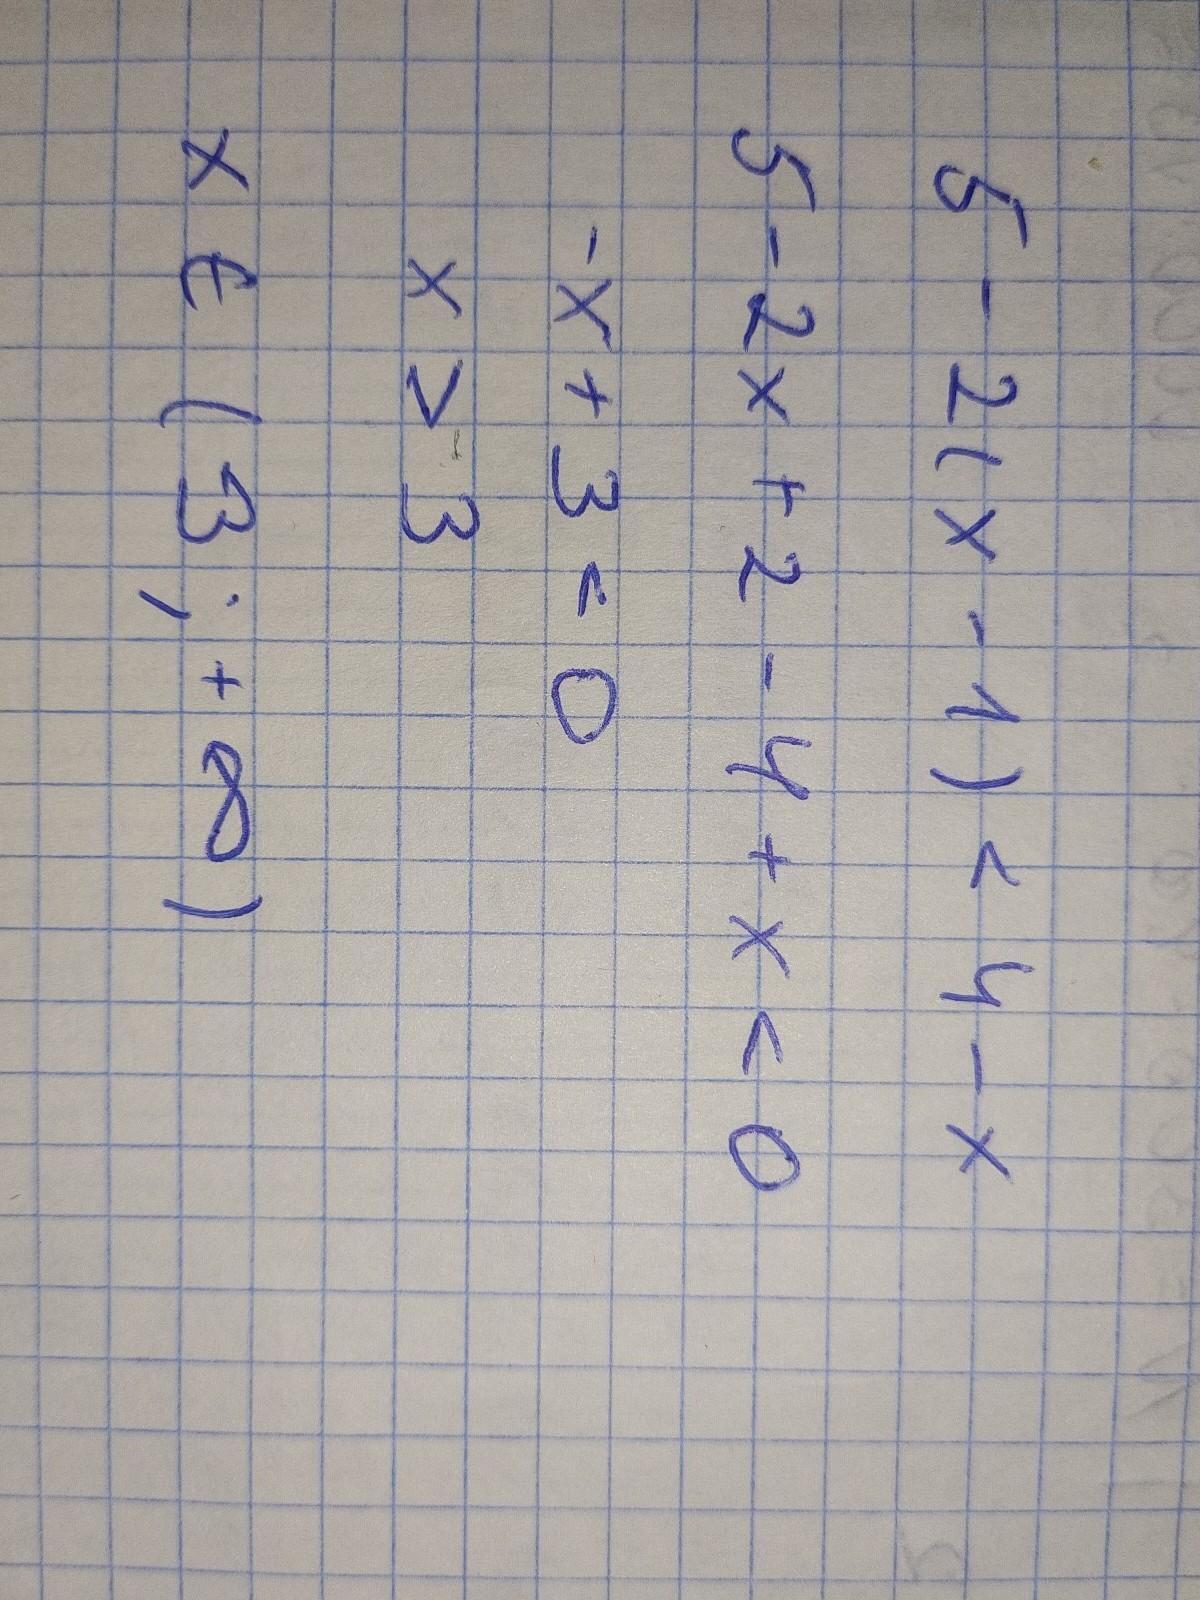 5 - 2(x - 1) < 4 - x
5 - 2x + 2 - 4 + x < 0
-x + 3 < 0
x > 3
x ∈ (3 ; +∞)